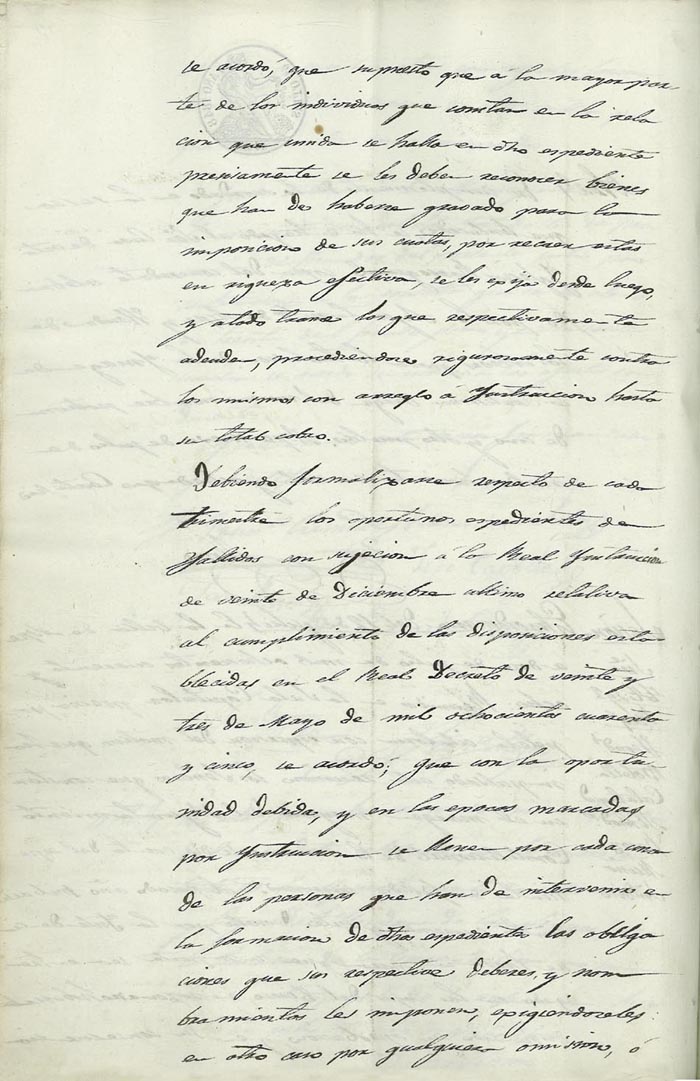 se acordó, que supuesto que á la mayor par-
te de los individuos que constan en la rela
cion que unida se halla en dho espediente
precisamente se les deben reconocer bienes
que han de haberse gravado para la
imposicion de sus cuotas, por recaer estas
en riqueza efectiva, se les exija desde luego,
y a todo trance los que respectivamente
adeuden, procediendose rigurosamente contra
los mismos con arreglo á Ynstruccion hasta
su total cobro.
Debiendo formalizarse respecto de cada
trimestre los oportunos espedientes de
fallidos con sujecion á la Real Ynstruccion
de veinte de Diciembre ultimo relativa
al cumplimiento de las disposiciones esta-
blecidas en el Real Decreto de veinte y
tres de Mayo de mil ochocientos cuarenta
y cinco, se acordó; que con la oportu-
nidad debida, y en las epocas marcadas
por Ynstruccion se llenen por cada una
de las personas que han de intervenir en
la formacion de dhos espedientes las obliga
ciones que sus respective deberes, y nom
bramientos les imponen, exigiendoseles
en otro caso por qualquiera omision, ó